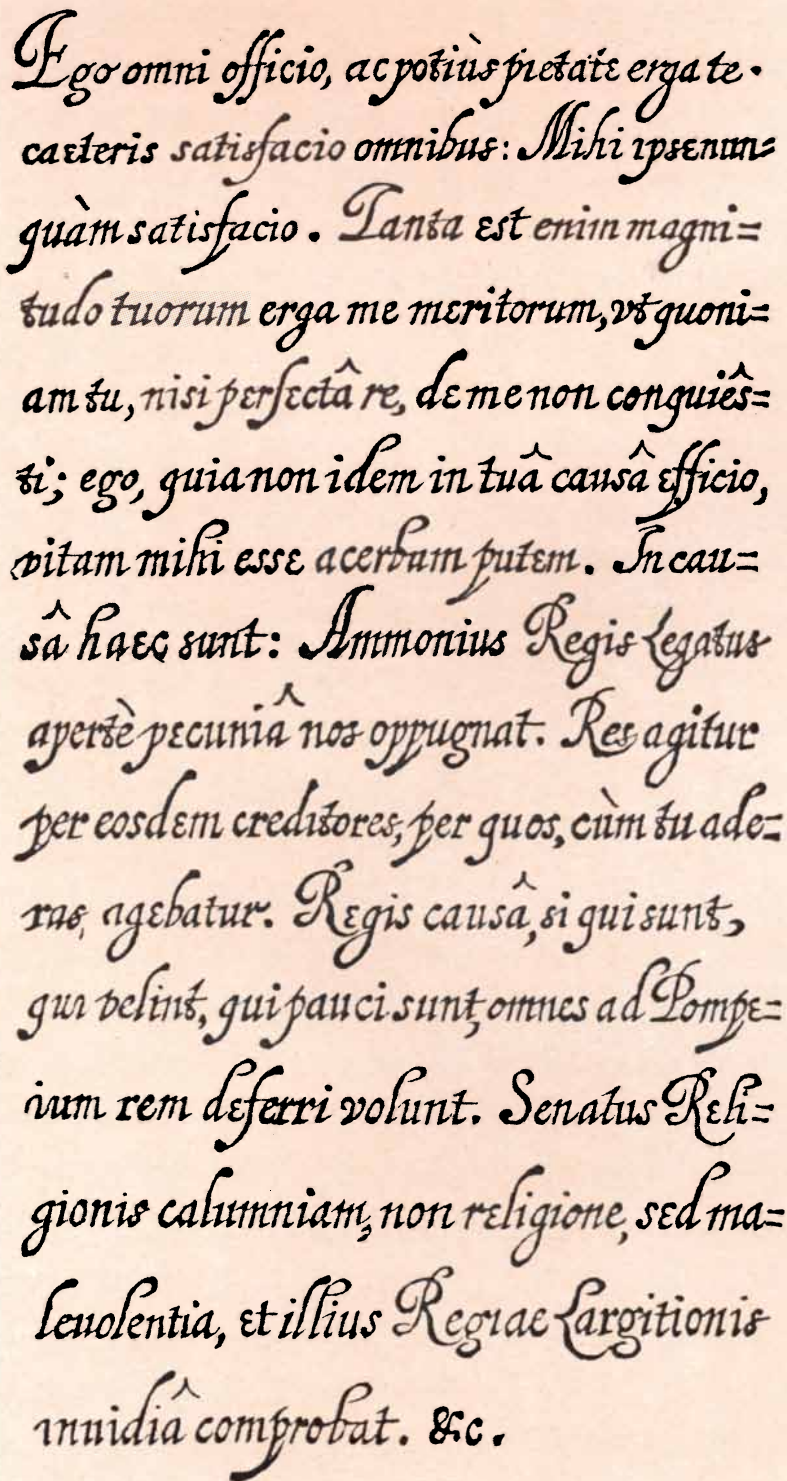 Ego omni officio, ac potiùs pietate erga te.
caeteris satisfacio omnibus: Mihi ipse nun=
quàm satisfacio. Tanta est enim magni=
tudo tuorum erga me meritorum, vt quoni=
am tu, nisi perfectâ re, de me non conquiês=
ti; ego, quia non idem in tuâ causâ efficio,
vitam mihi esse acerbam putem. In cau=
sâ haec sunt: Ammonius Regis Legatus
apertè pecuniâ nos oppugnat. Res agitur
per eosdem creditores, per quos, cùm tu ade=
ras, agebatur. Regis causâ, si qui sunt,
qui velint, qui pauci sunt, omnes ad Pompe=
ium rem deferri volunt. Senatus Reli=
gionis calumniam, non religione, sed ma=
levolentia, et illius Regiae Largitionis
inuidiâ comprobat. &c.